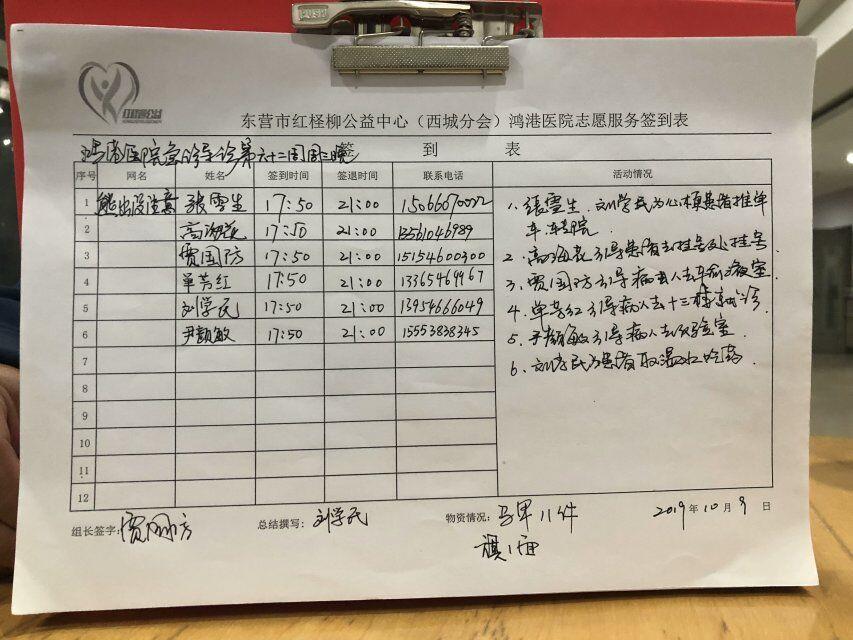 PUSH
红柽柳公益
东营市红柽柳公益中心（西城分会）鸿港医院志愿服务签到表
签 到 表
鸿港医院导诊第六十二周周三晚
序号 网名 姓名 签到时间 签退时间 联系电话 活动情况
1 熊出没注意 张雪生 17:50 21:00
2 高海花 17:50 21:00 13561046989
3 贾国防 17:50 21:00 15154600300
4 单芳红 17:50 21:00 13365469967
5 刘学民 17:50 21:00 13954666049
6 尹颜敏 17:50 21:00 15553838345
7
8
9
10
11
12
1、张雪生、刘学民为心梗患者推单
车、转院
2、高海花引导患者去挂号处挂号
3、贾国防引导病人去
4、单芳红引导病人去十三楼就诊
5、尹颜敏引导病人去化验室
6、刘学民为患者取温水吃药
组长签字：贾国防 总结撰写：刘学民 物资情况：马甲11件 2019年10月9日
旗1面